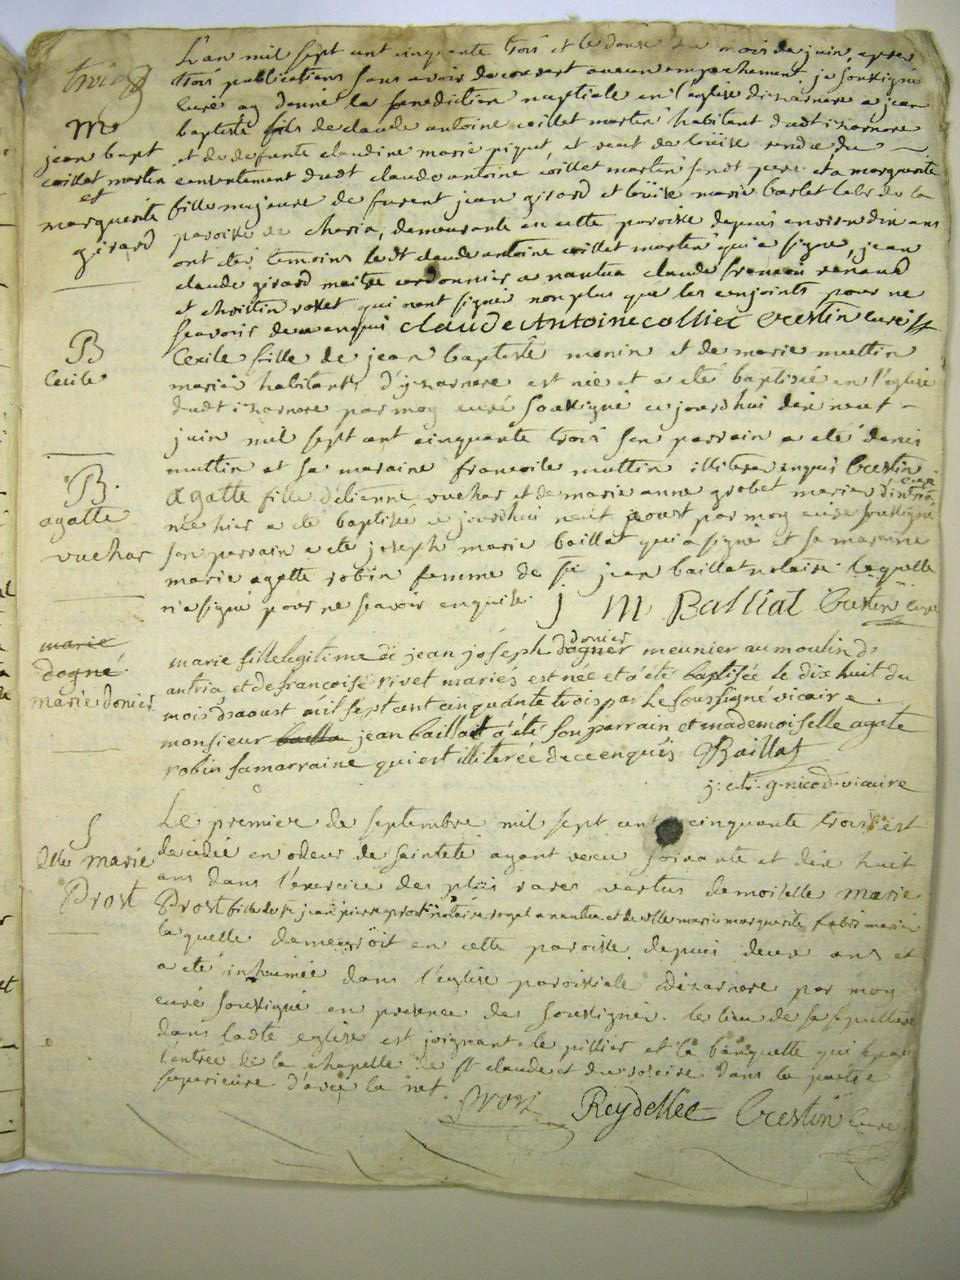 L'an mil sept cent cinquante trois et le douze du mois de juin, apres
trois publications sans avoir decouvert aucun empechement, je soussigné
curé ay donné la benediction nuptiale en l'eglise dizarnore a jean
M
baptiste fils de claude antoine coillet martin habitant dudt izarnore
jean bapt
et de defunte claudine marie piquet, et veuf de loüise
coillet martin
consentement dudt claude antoine coillet martin sondt pere et a marguerite
et
marguerite
girard
fille majeure de furent jean girard et loüise marie barlet de la
paroisse de charia, demeurante en cette paroisse depuis environ dix ans
ont été temoins ledt claude antoine coillet martin qui a signé, jean
claude girard maitre cordonnier a nantua claude françois renaud
et christin rosset qui n'ont signé non plus que les conjoints pour ne
sçavoir de ce enquis Claude Antoine colliet Crestin curé
B
Cecile
Cecile fille de jean baptiste monin et de marie muttin
mariés habitants d'yzarnore est née et a été baptisée en l'eglise
dudt izarnore par moy curé soussigné aujourdhui dix neuf
juin mil sept cent cinquante trois son parrain a été denis
muttin et sa maraine françoise muttin illiteré enquis Crestin
curé
B.
agatte
vuchar
Agatte fille d'étienne vuchar et de marie anne grobet mariés d'intria
née hier a été baptisée aujourdhui neuf aoust par moy curé soussigné
son parrain a été joseph marie baillat qui a signé et sa maraine
marie agatte robin femme de sr jean baillat notaire laquelle
n'a signé pour ne sçavoir enquise. J M Balliat Crestin curé
marie
dogné
marie donier
donier
marie fille legitime de jean joséph dogner meunier au moulin d
antria et de françoise rivet mariés est née et a été baptisée le dix huit du
mois d'aoust mil sept cent cinquante trois par le soussigné vicaire
monsieur bailla jean baillat a été son parrain et mademoiselle agate
robin sa marraine qui est illiterée de ce enquis Baillat
nicod vicaire
S
dlle marie
Prost
Le premier de septembre mil sept cent cinquante trois est
decedée en odeur de sainteté ayant vecu soixante et dix huit
ans dans l'exercice des plus rares vertus demoiselle marie
Prost fille de sr jean pierre prost notaire royal a nantua et de dlle marie marguerite fabri mariés
laquelle demeuroit en cette paroisse depuis deux ans et
a été inhumée dans l'eglise paroissiale dizarnore par moy
curé soussigné en presence des soussignés. le lieu de sa sepulture
dans ladte eglise est joignant le pillier et la banquette qui separe
l'entrée de la chapelle de st claude et du rosaire dans la partie
superieure d'avec la nef.
Prost Reydellet Crestin curé